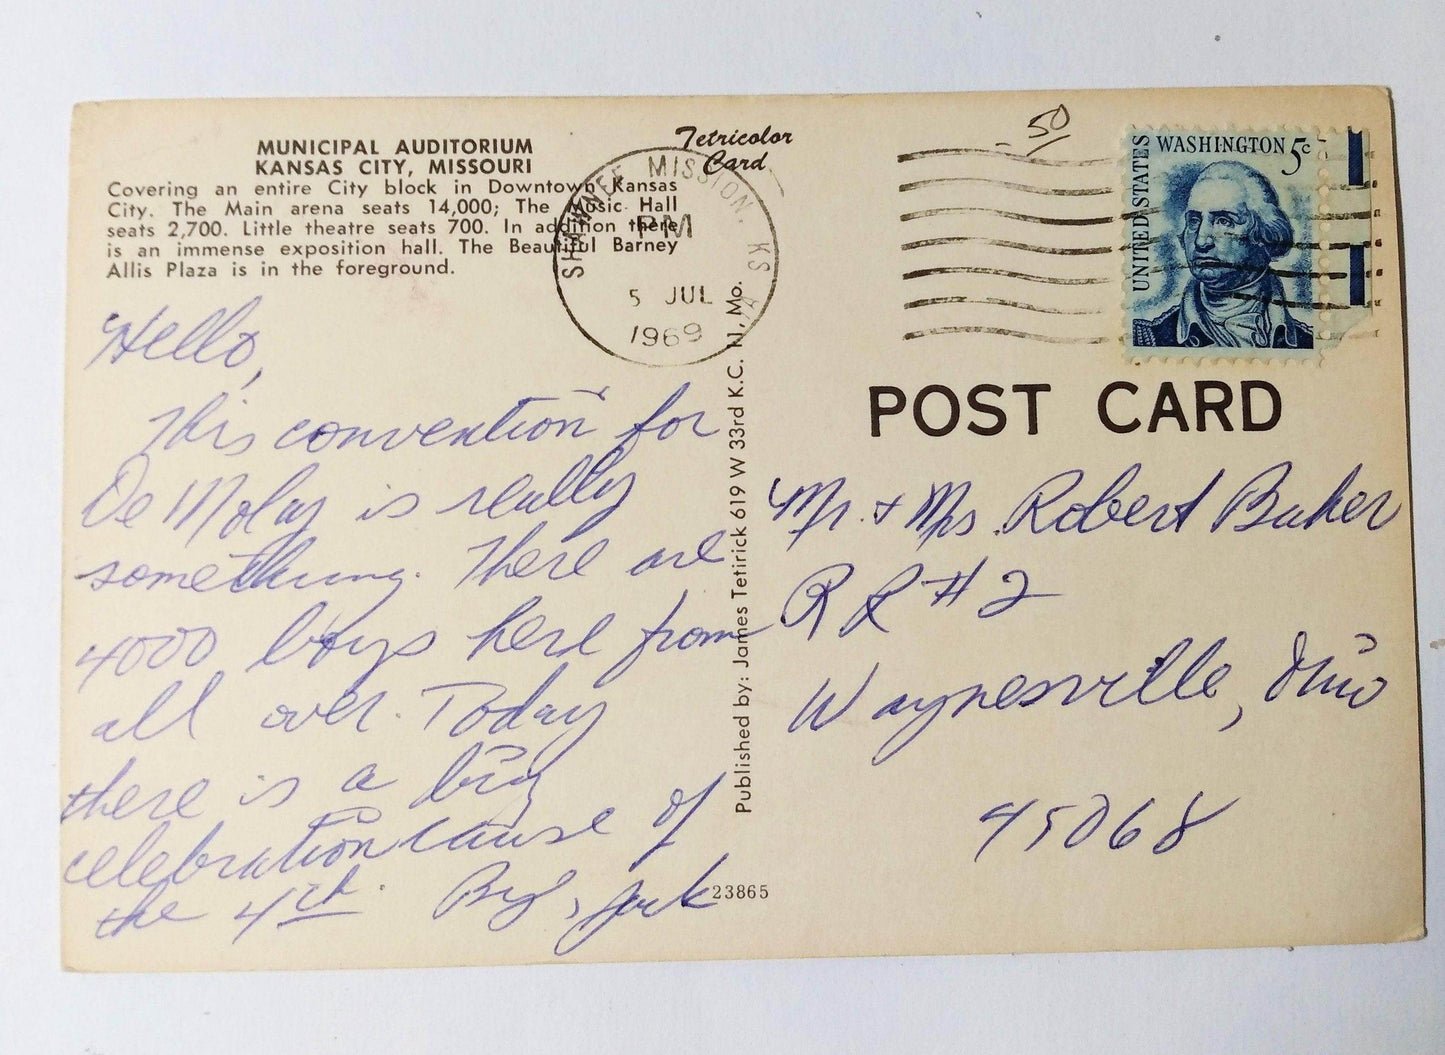 MUNICIPAL AUDITORIUM
KANSAS CITY, MISSOURI
Covering an entire City block in Downtown Kansas
City. The Main arena seats 14,000; The Music Hall
seats 2,700. Little theatre seats 700. In addition there
is an immense exposition hall. The Beautiful Barney
Allis Plaza is in the foreground.
Tetricolor
Card
SHAWNEE MISSION, KS
PM
5 JUL
1969
.50
UNITED STATES
WASHINGTON 5c
POST CARD
Hello,
This convention for
De Molay is really
something. There are
4000 boys here from
all over. Today
there is a big
celebration cause of
the 4th. Bye, Jack
Published by: James Tetirick 619 W 33rd K.C. N, Mo.
23865
Mr. + Mrs. Robert Baker
RR #2
Waynesville, Ohio
45068